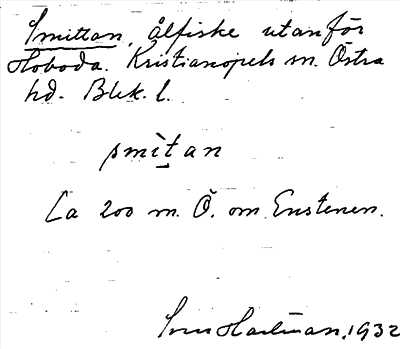 Smittan, ålfiske utanför
Stoboda. Kristianopels sn. Östra
hd. Blek. l.
smìtan
Ca 200 m. Ö. om Enstenen.
Sven Hartman, 1932